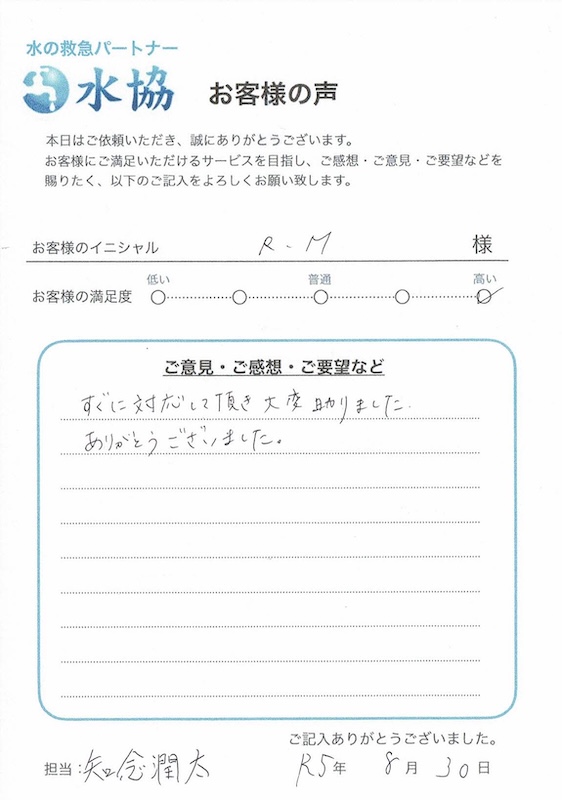 水の救急パートナー
水協 お客様の声
本日はご依頼いただき、誠にありがとうございます。
お客様にご満足いただけるサービスを目指し、ご感想・ご意見・ご要望などを
賜りたく、以下のご記入をよろしくお願い致します。
お客様のイニシャル R-M 様
低い 普通 高い
お客様の満足度
ご意見・ご感想・ご要望など
すぐに対応して頂き大変助かりました.
ありがとうございました。
ご記入ありがとうございました。
担当:知念潤太 R5年 8月30日